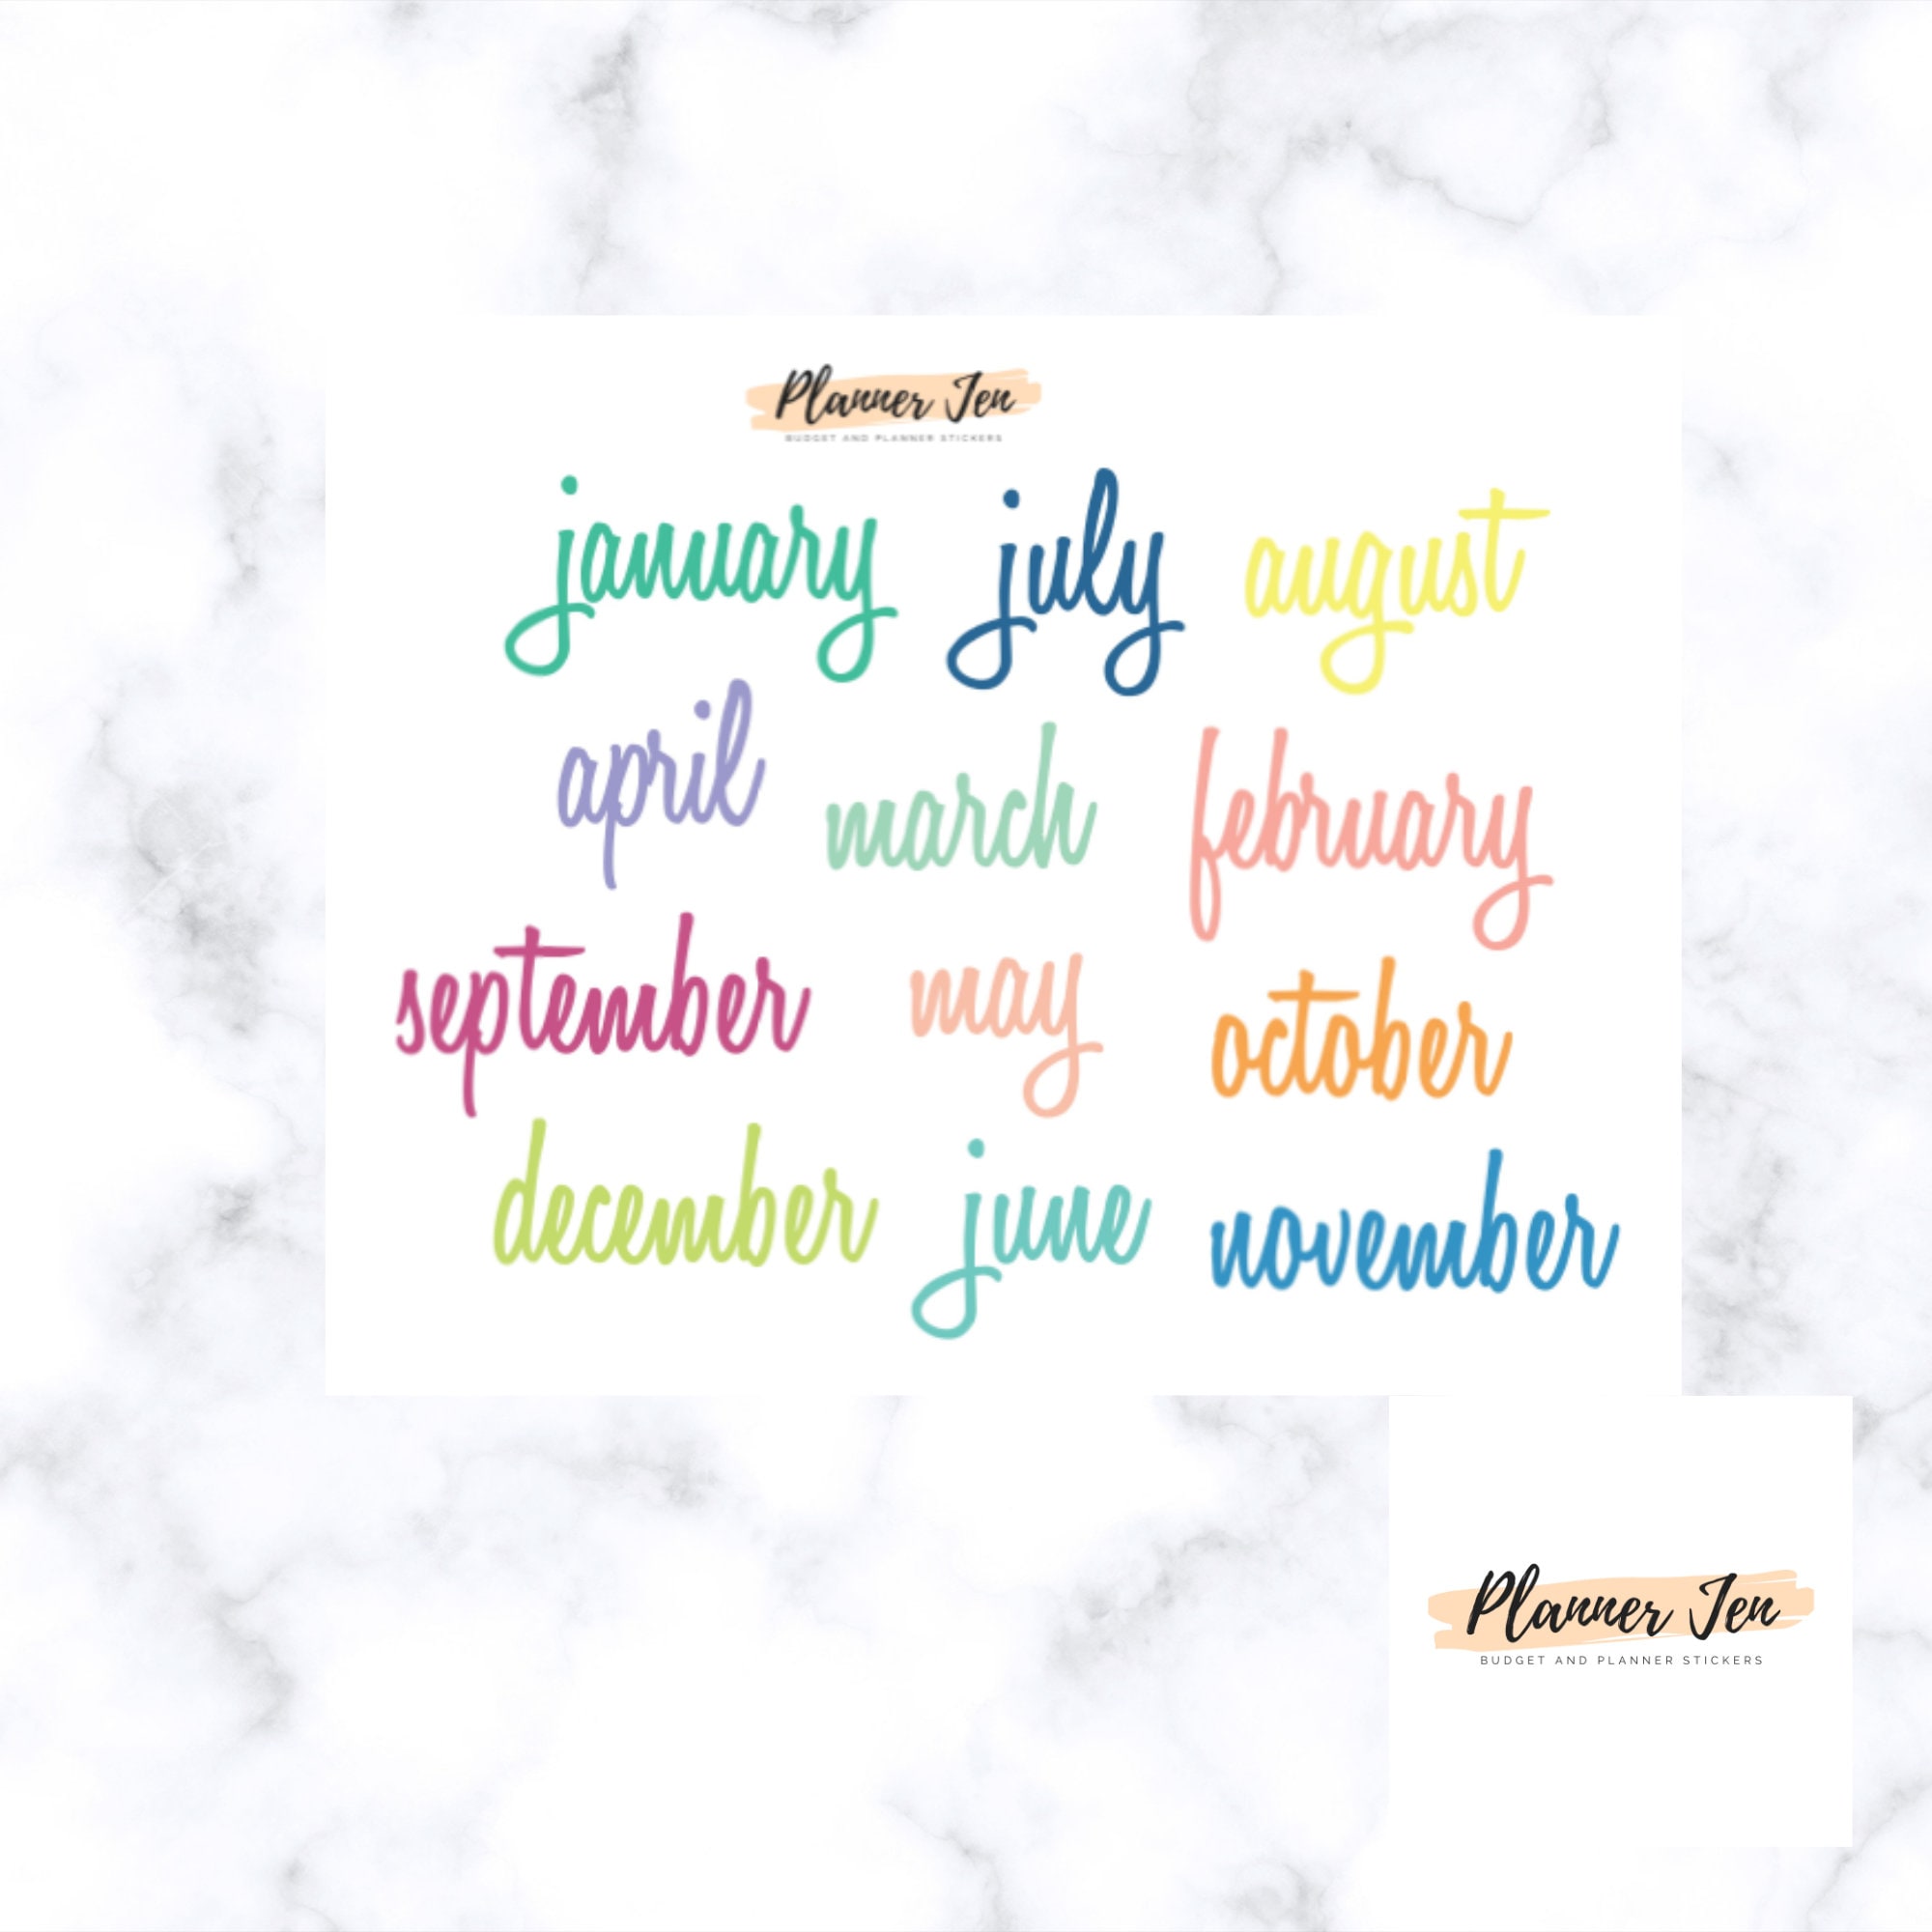 Planner Jen
BUDGET AND PLANNER STICKERS
january july august
april march february
september may october
december june november
Planner Jen
BUDGET AND PLANNER STICKERS